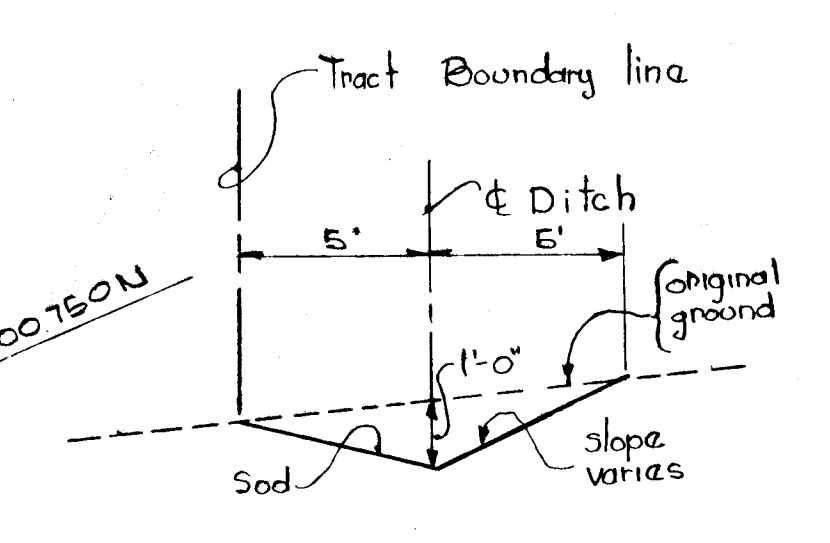 Tract Boundary line
℄ Ditch
5'
5'
00.750N
original
ground
1'-0"
slope
varies
Sod